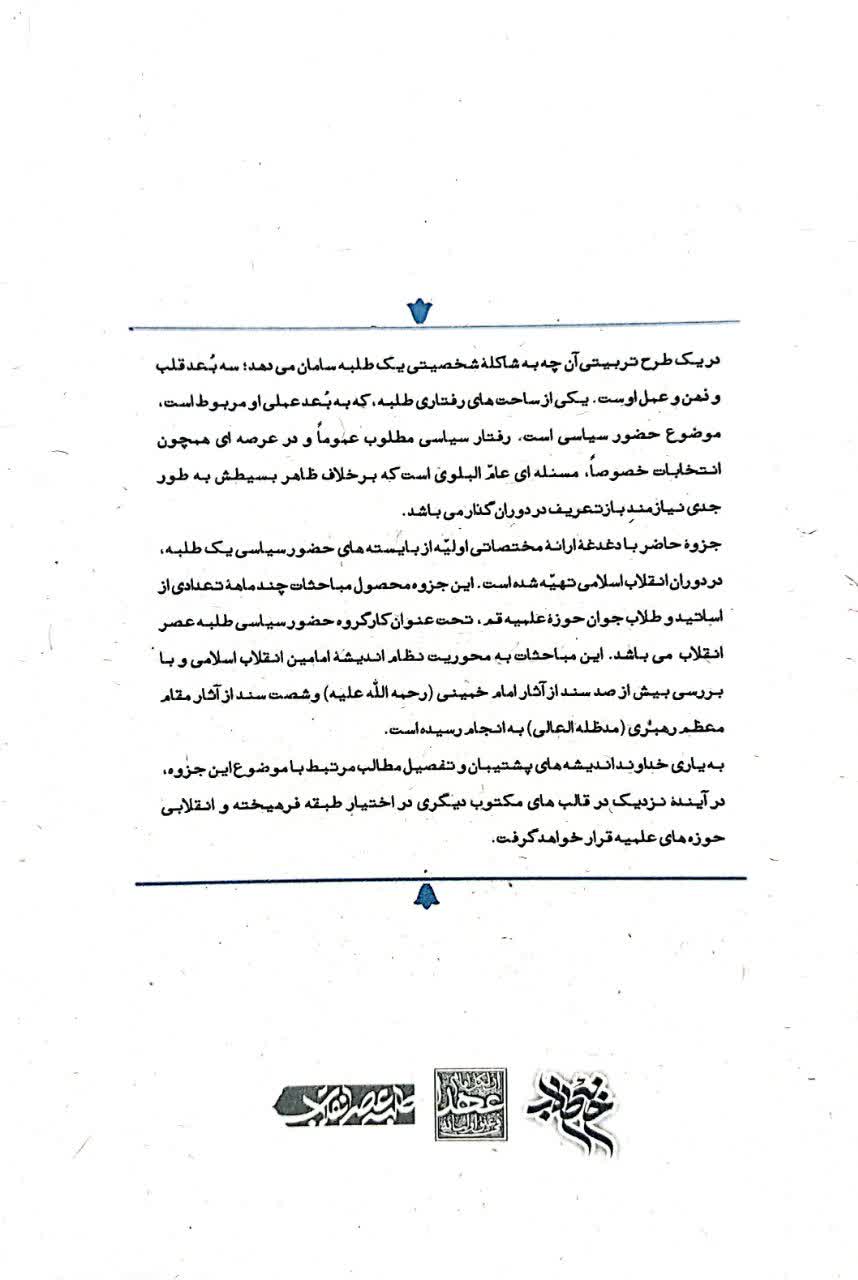 در یک طرح تربیتی آن چه به شاکلۀ شخصیتی یک طلبه سامان می دهد؛ سه بُعد قلب
و ذهن و عمل اوست. یکی از ساحت های رفتاری طلبه، که به بُعد عملی او مربوط است،
موضوع حضور سیاسی است. رفتار سیاسی مطلوب عموماً و در عرصه ای همچون
انتخابات خصوصاً، مسئله ای عامّ البلوی است که برخلاف ظاهر بسیطش به طور
جدی نیازمند بازتعریف در دوران گذار می باشد.
جزوۀ حاضر با دغدغۀ ارائۀ مختصاتی اولیّه از بایسته های حضور سیاسی یک طلبه،
در دوران انقلاب اسلامی تهیّه شده است. این جزوه محصول مباحثات چند ماهۀ تعدادی از
اساتید و طلاب جوان حوزۀ علمیه قم، تحت عنوان کارگروه حضور سیاسی طلبه عصر
انقلاب می باشد. این مباحثات به محوریت نظام اندیشۀ امامین انقلاب اسلامی و با
بررسی بیش از صد سند از آثار امام خمینی (رحمه الله علیه) و شصت سند از آثار مقام
معظم رهبری (مدظله العالی) به انجام رسیده است.
به یاری خداوند اندیشه های پشتیبان و تفصیل مطالب مرتبط با موضوع این جزوه،
در آیندۀ نزدیک در قالب های مکتوب دیگری در اختیار طبقه فرهیخته و انقلابی
حوزه های علمیه قرار خواهد گرفت.
عهد
طلبه عصر انقلاب